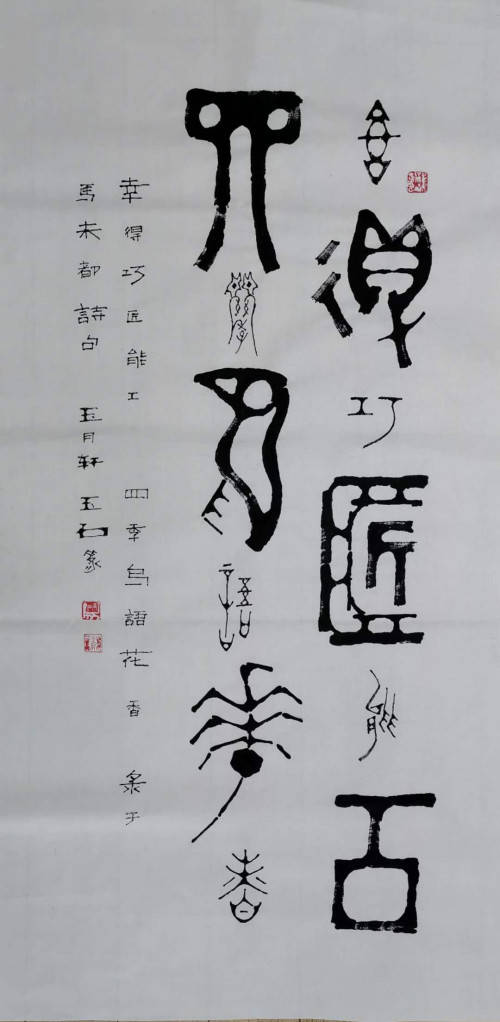 幸得巧匠能工
四季鳥語花香
幸得巧匠能工 四季鸟語花香 彔于
馬未都詩句 玉月轩 玉石篆